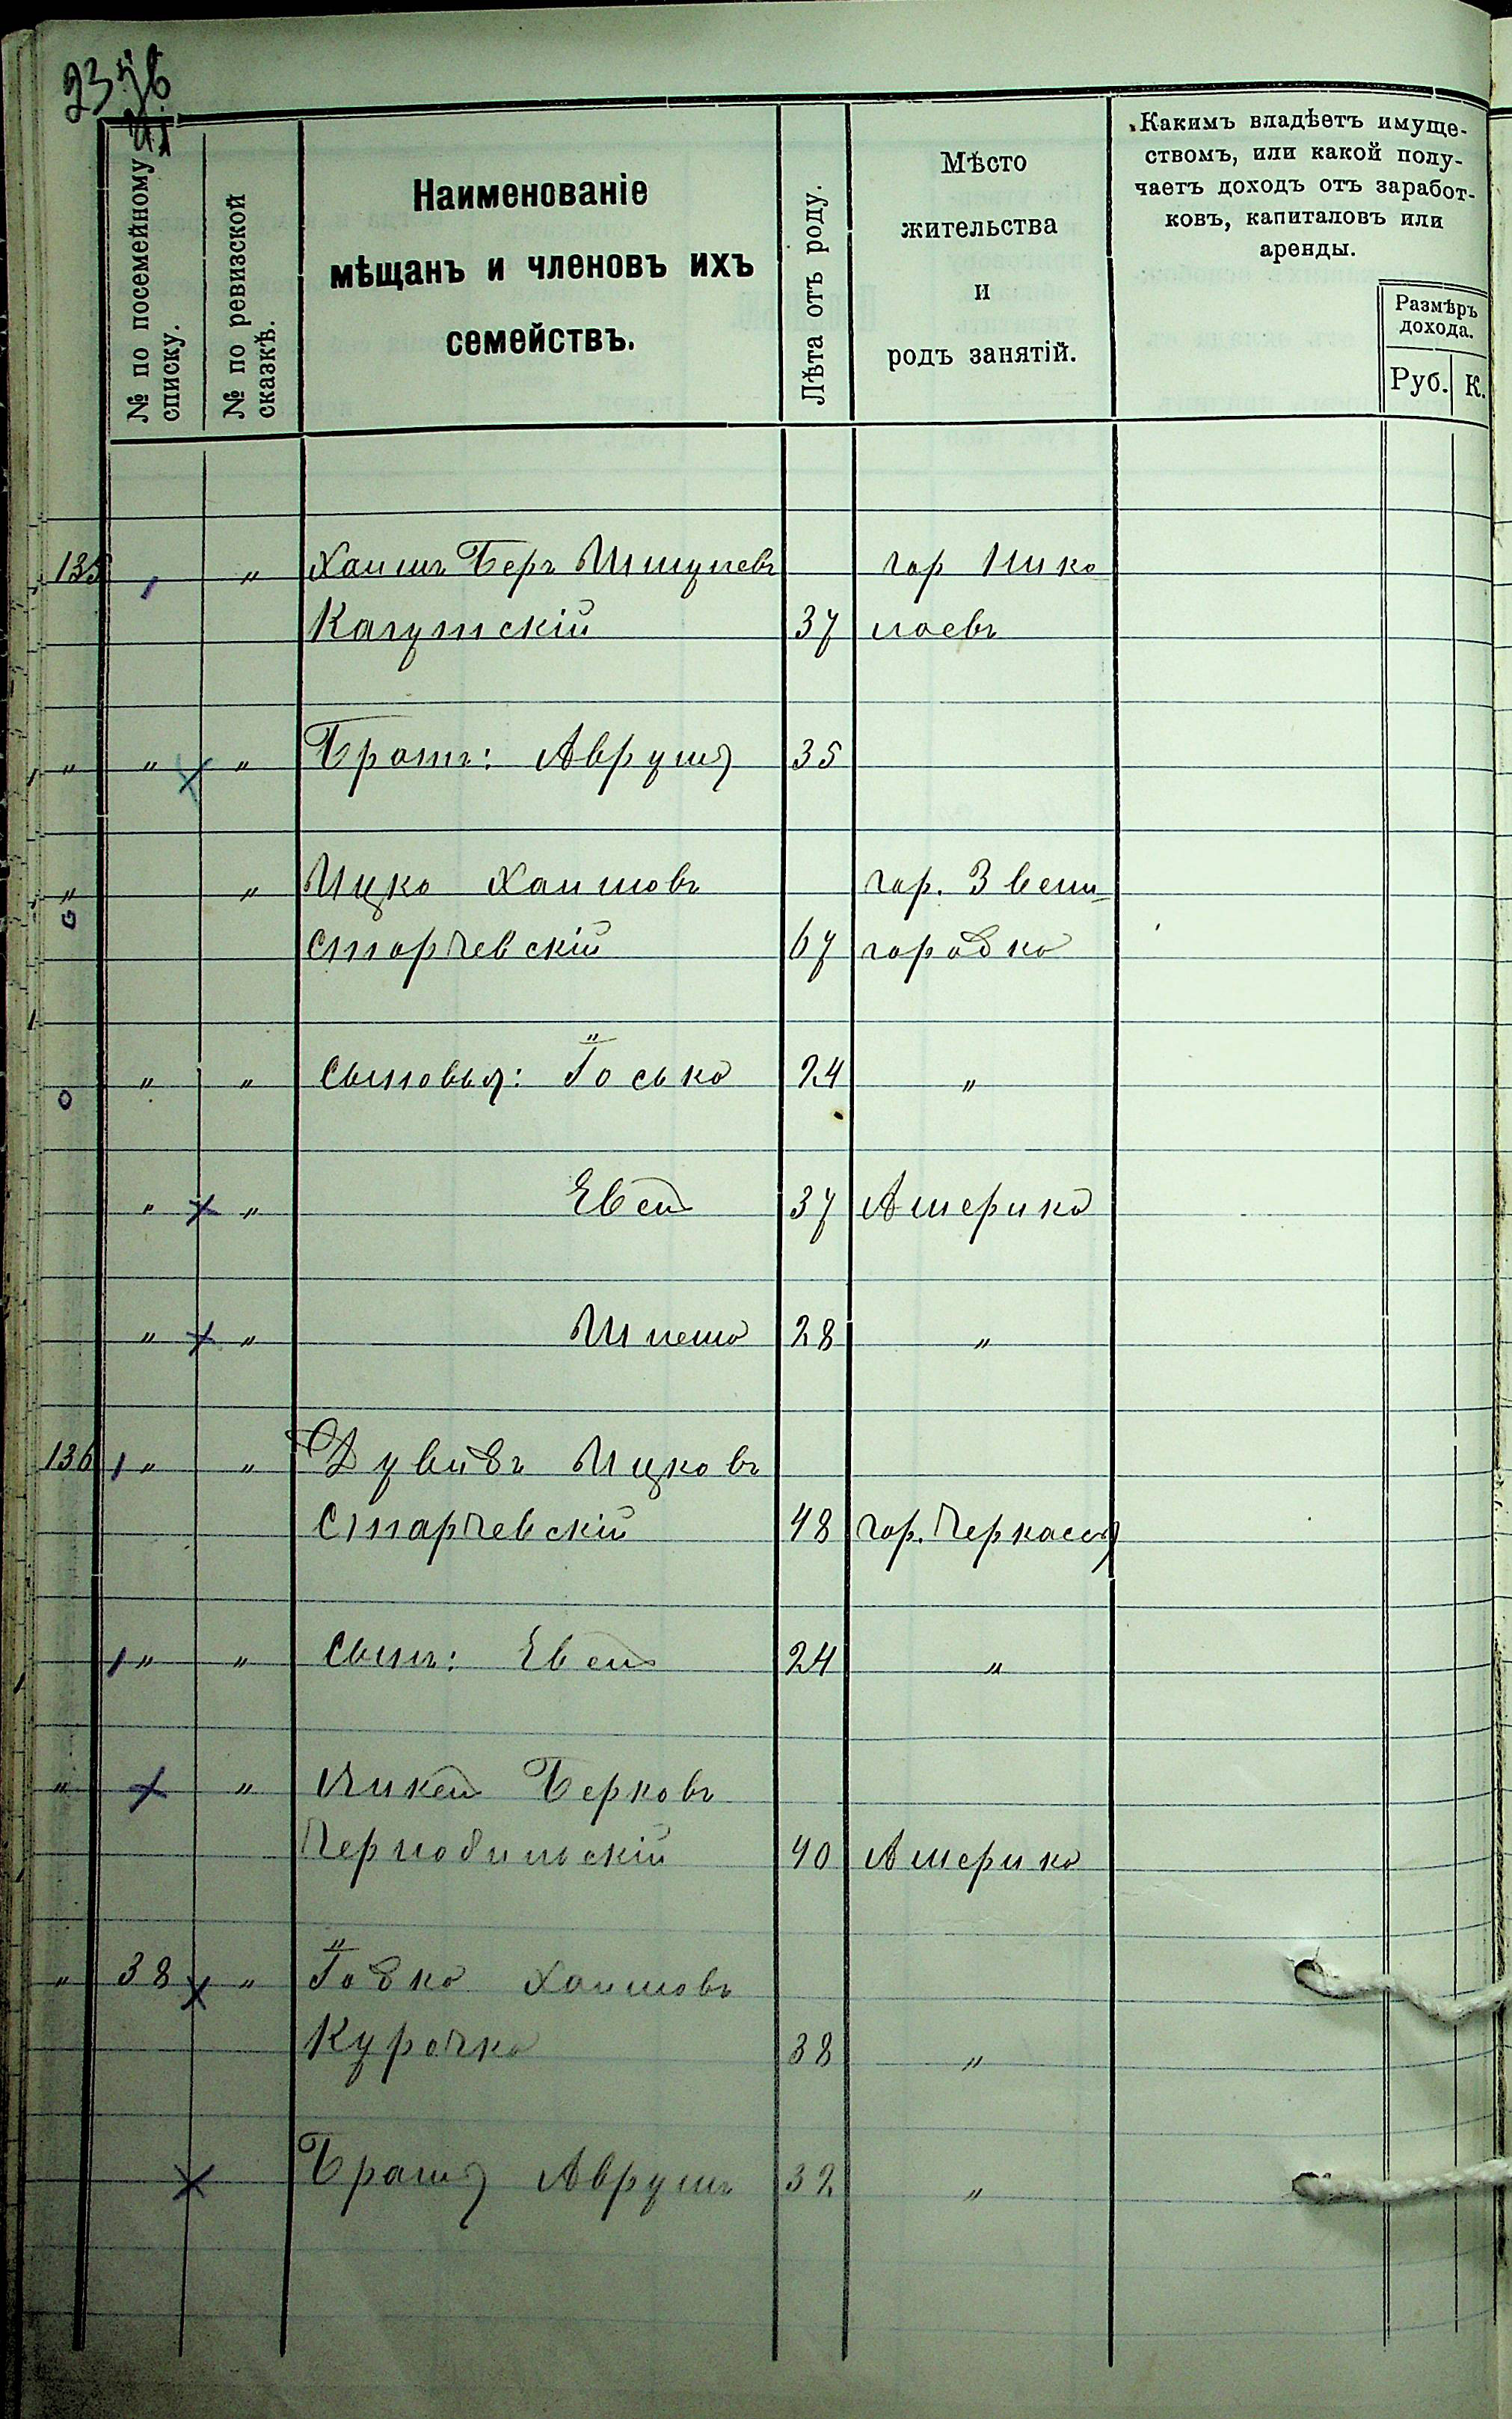 № по посемейному списку.
№ по ревизской сказкѣ.
Наименованіе
мѣщанъ и членовъ ихъ
семействъ.
Лѣта отъ роду.
Мѣсто
жительства
и
родъ занятій.
Какимъ владѣетъ имуще-
ствомъ, или какой полу-
чаетъ доходъ отъ заработ-
ковъ, капиталовъ или
аренды.
Размѣръ
дохода.
Руб. К.
135 " Хаимъ Беръ гор Нико
Кагутскій 37 лаевъ
" " " Братъ: Аврумъ 35
" " Ицко Хаимовъ гор. Звени-
Старчевскій 67 городка
" " Сыновья: Іосько 24 "
" " Евсей 37 Америка
" " Шлема 28 "
136 " " Дувидъ Ицковъ
Старчевскій 48 гор. Черкассы
" " Сынъ: Евсей 24 "
" " Берковъ
Чернобильскій 40 Америка
" 38 " Іовко Хаимовъ
Курочка 38 "
Братъ Аврумъ 32 "